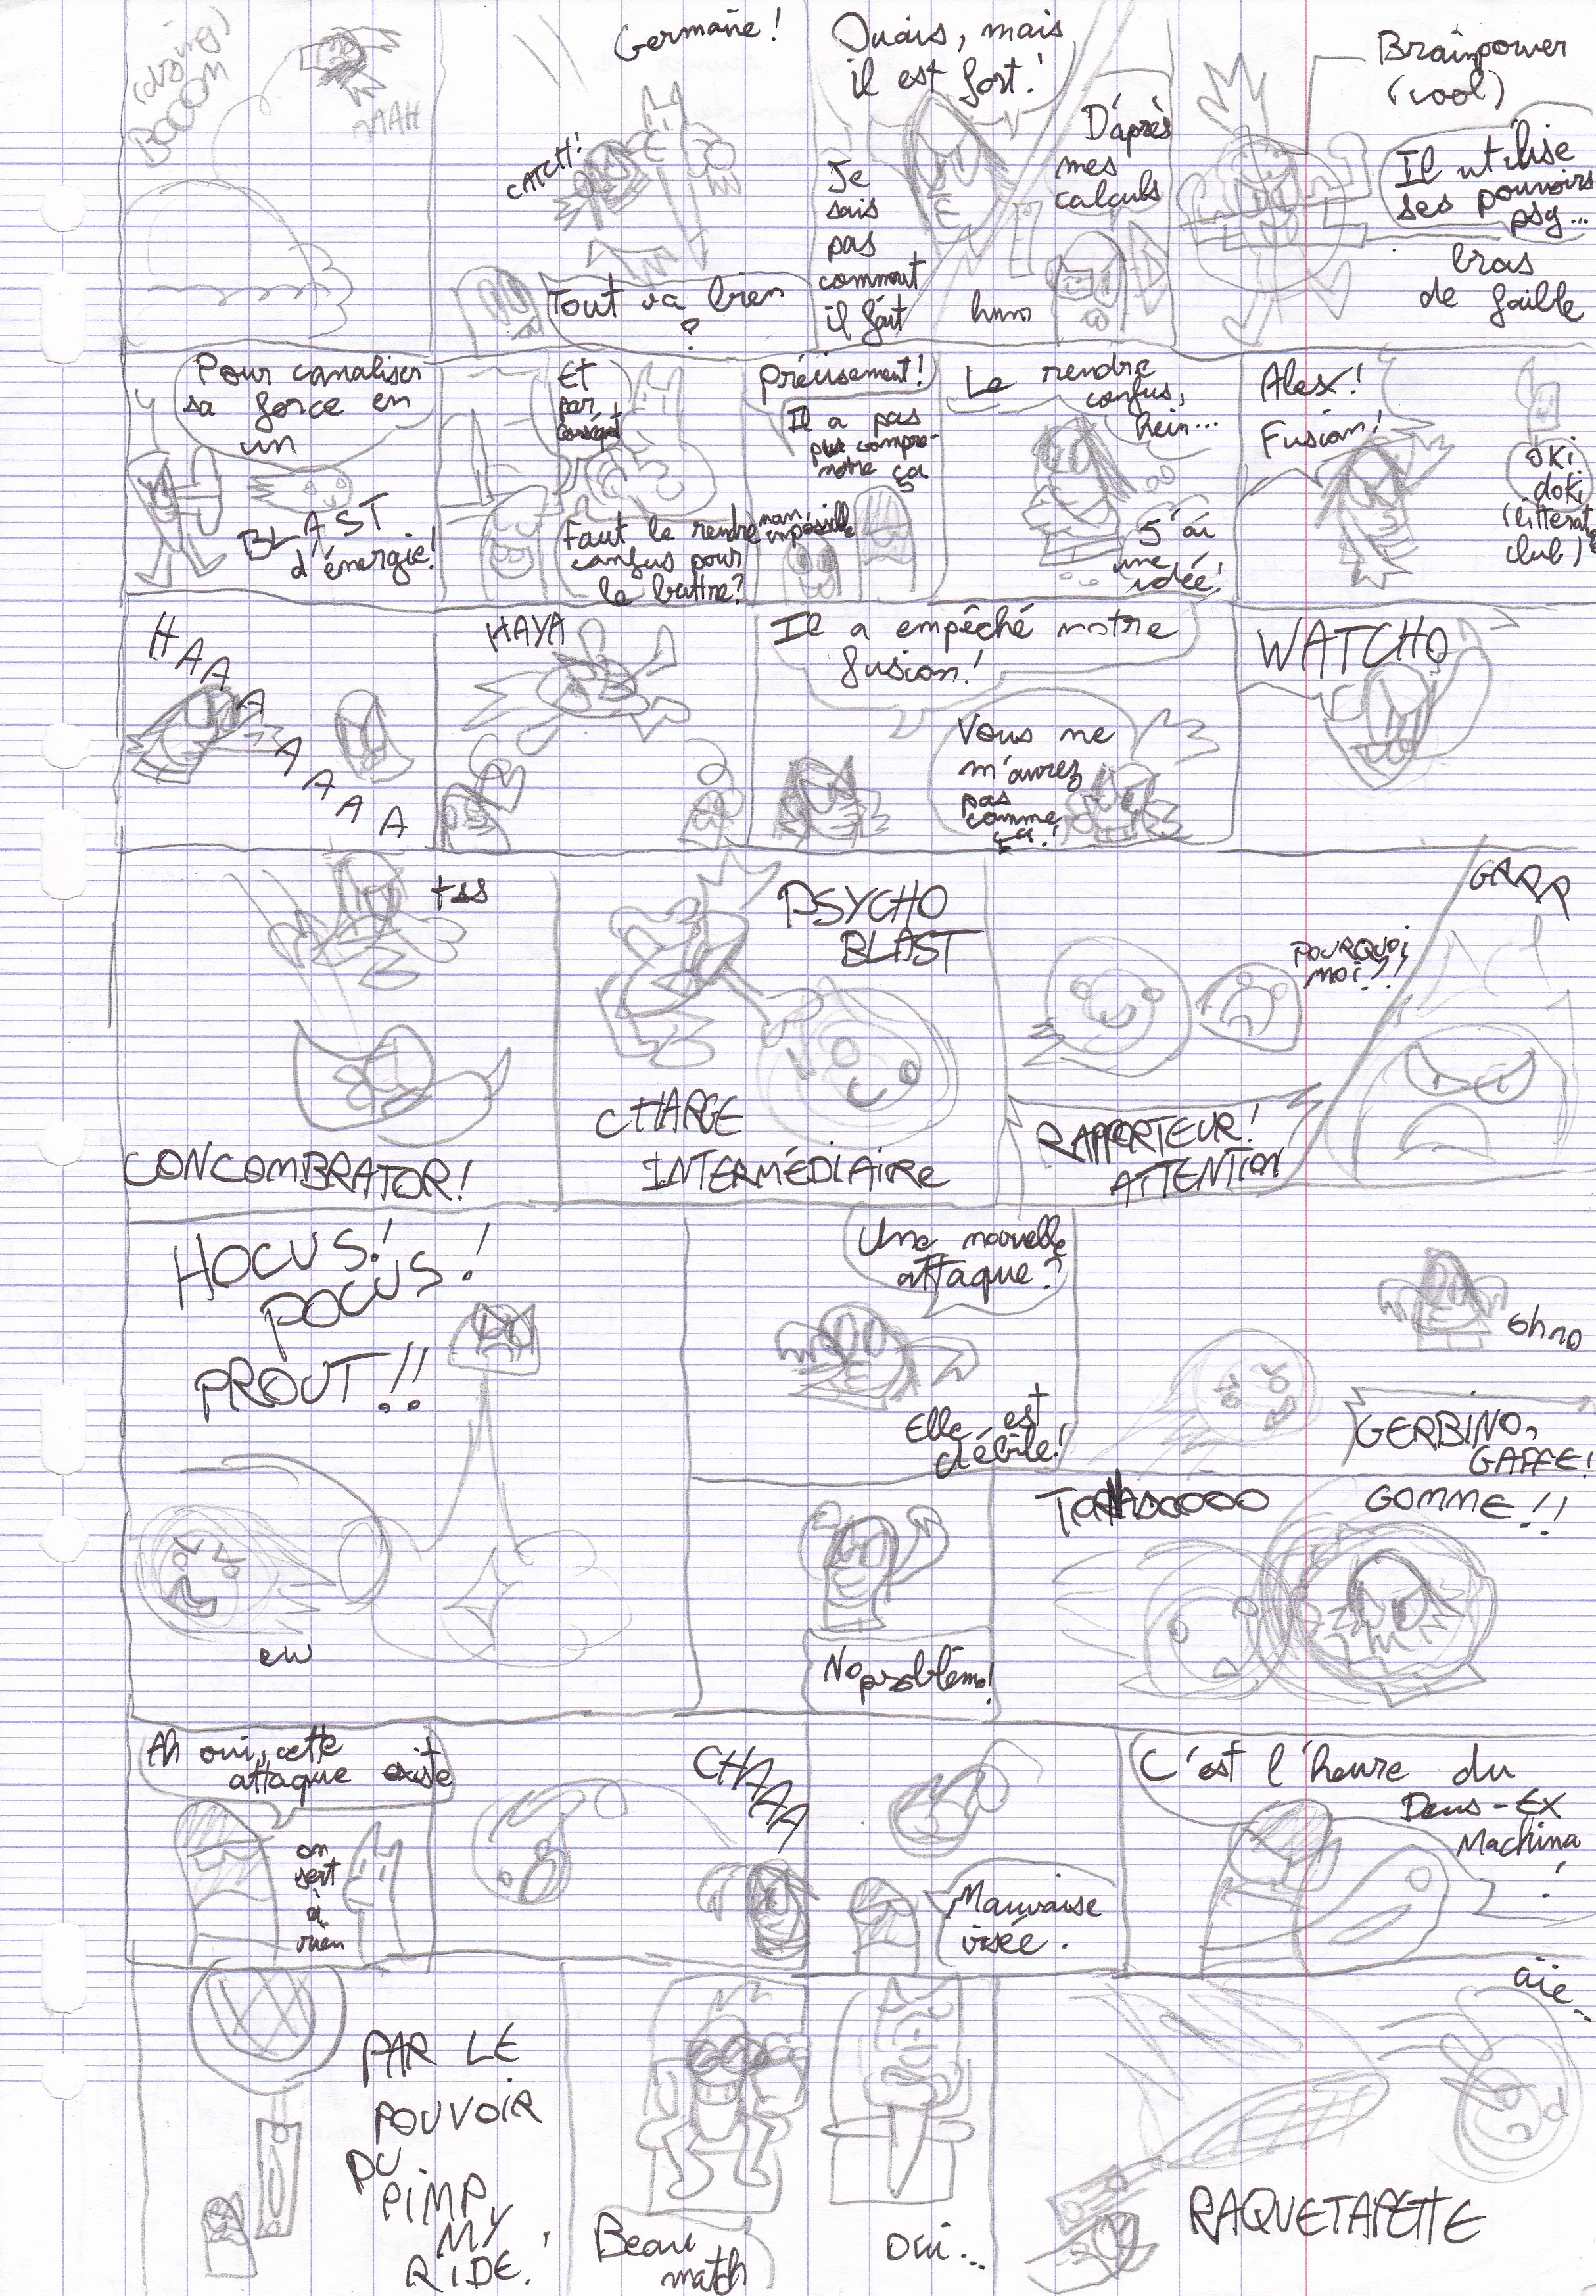 (doing)
BOOOM
AAAH
Germaine!
CATCH!
Tout va bien
?
Ouais, mais
il est fort!
Je
sais
pas
comment
il fait
D'après
mes
calculs
humm
Brainpower
(cool)
Il utilise
ses pouvoirs
psy...
bras
de faible
Pour canaliser
sa force en
un
BLAST
d'énergie!
Et
par
conséquent
Faut le rendre
confus pour
le battre?
Précisement!
Il a pas
pu compre-
ndre ça
nan,
impossible
Le rendre
confus,
hein...
J'ai
une
idée!
Alex!
Fusion!
Oki
doki
(litterature
club)
HAAAAAAAA
HAYA
Il a empêché notre
fusion!
Vous ne
m'aurez
pas
comme
ça!
WATCHO
tss
CONCOMBRATOR!
PSYCHO
BLAST
CHARGE
INTERMÉDIAIRE
POURQUOI
MOI!!
RAPPORTEUR!
ATTENTION
GARR
HOCUS!
POCUS!
PROUT!!
ew
Une nouvelle
attaque?
Elle est
débile!
oh no
GERBINO,
GAFFE!
No problèmo!
TORNADOOOO
GOMME!!
Ah oui, cette
attaque existe
on
sert
à
rien
CHAAA
Mauvaise
visée.
C'est l'heure du
Deus-Ex
Machina
!
PAR LE
POUVOIR
DU
PIMP
MY
RIDE!
Beau
match
Oui...
aïe...
RAQUETAPETTE